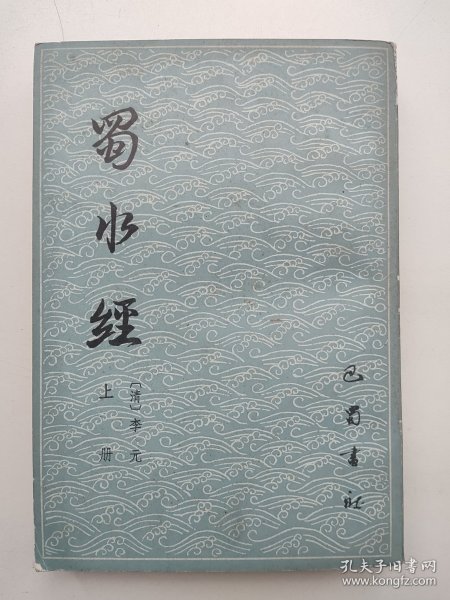 蜀水經
〔清〕李元
上册
巴蜀書社
孔夫子旧书网
www.kongfz.com